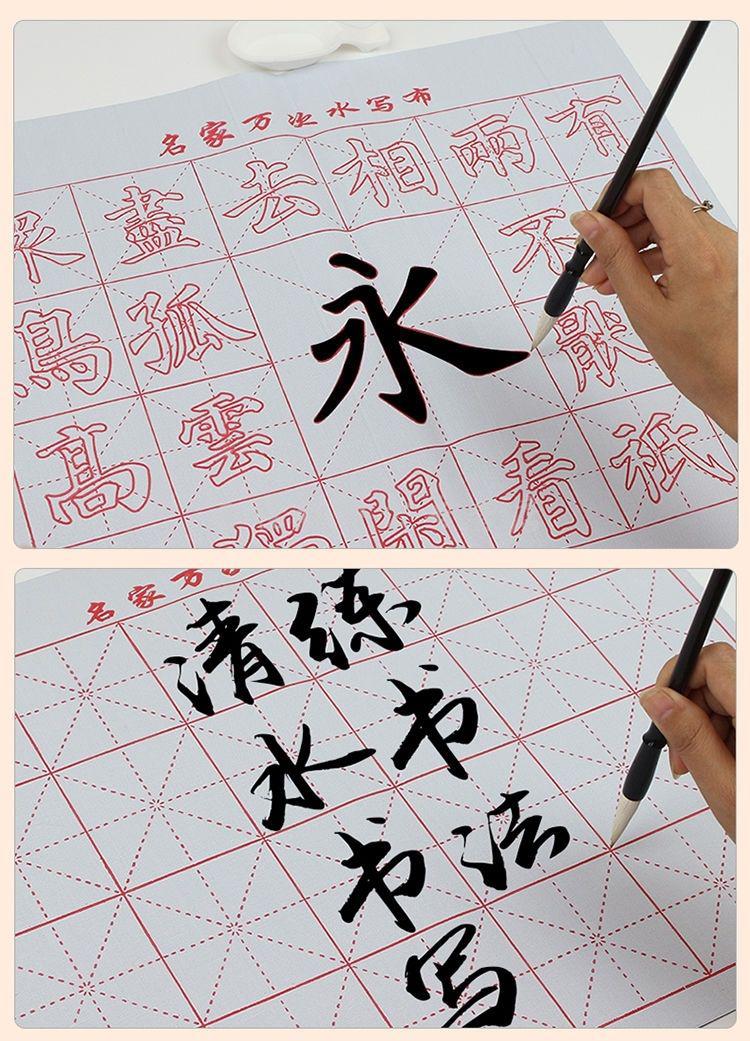 名家万次水写布
盡去相兩有
永不
鳥孤
髙雲閑看祇
名家万
练书法
清水书写